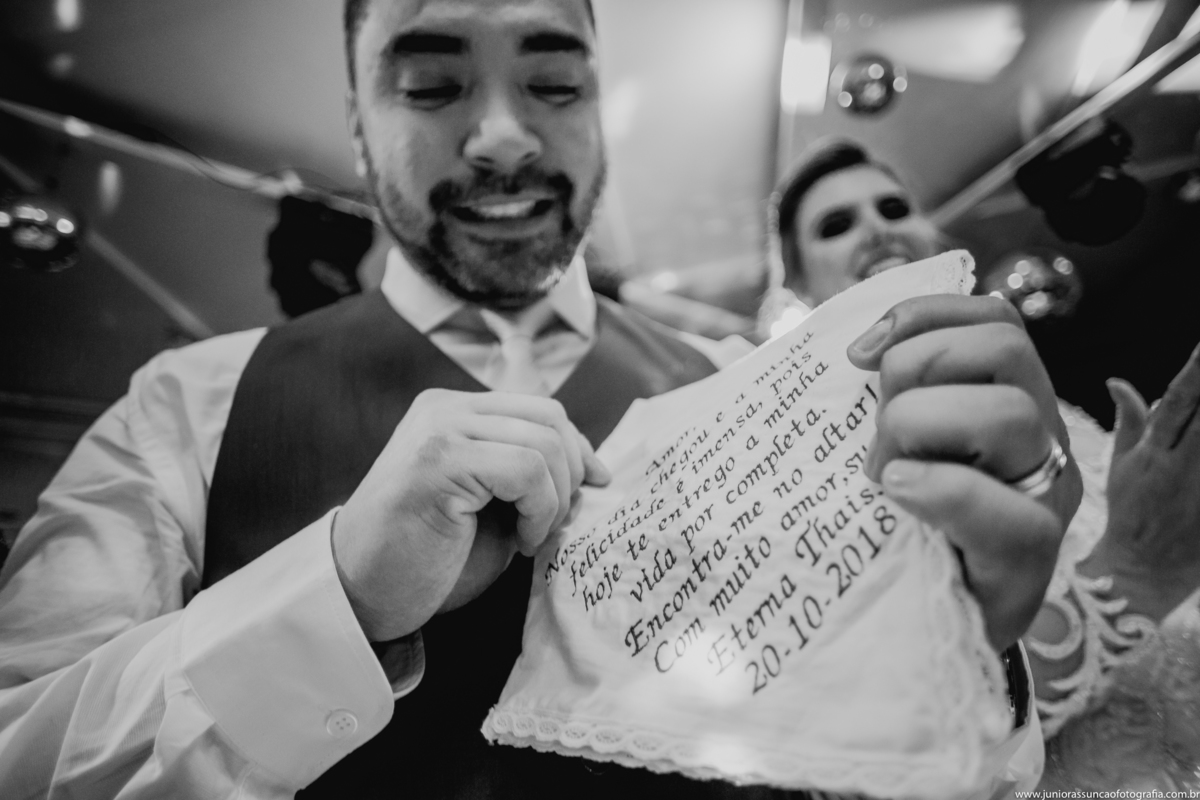 Amor,
Nosso dia chegou e a minha
felicidade é imensa, pois
hoje te entrego a minha
vida por completa.
Encontra-me no altar!
Com muito amor, su
Eterna Thais.
20-10-2018
www.juniorassuncaofotografia.com.br